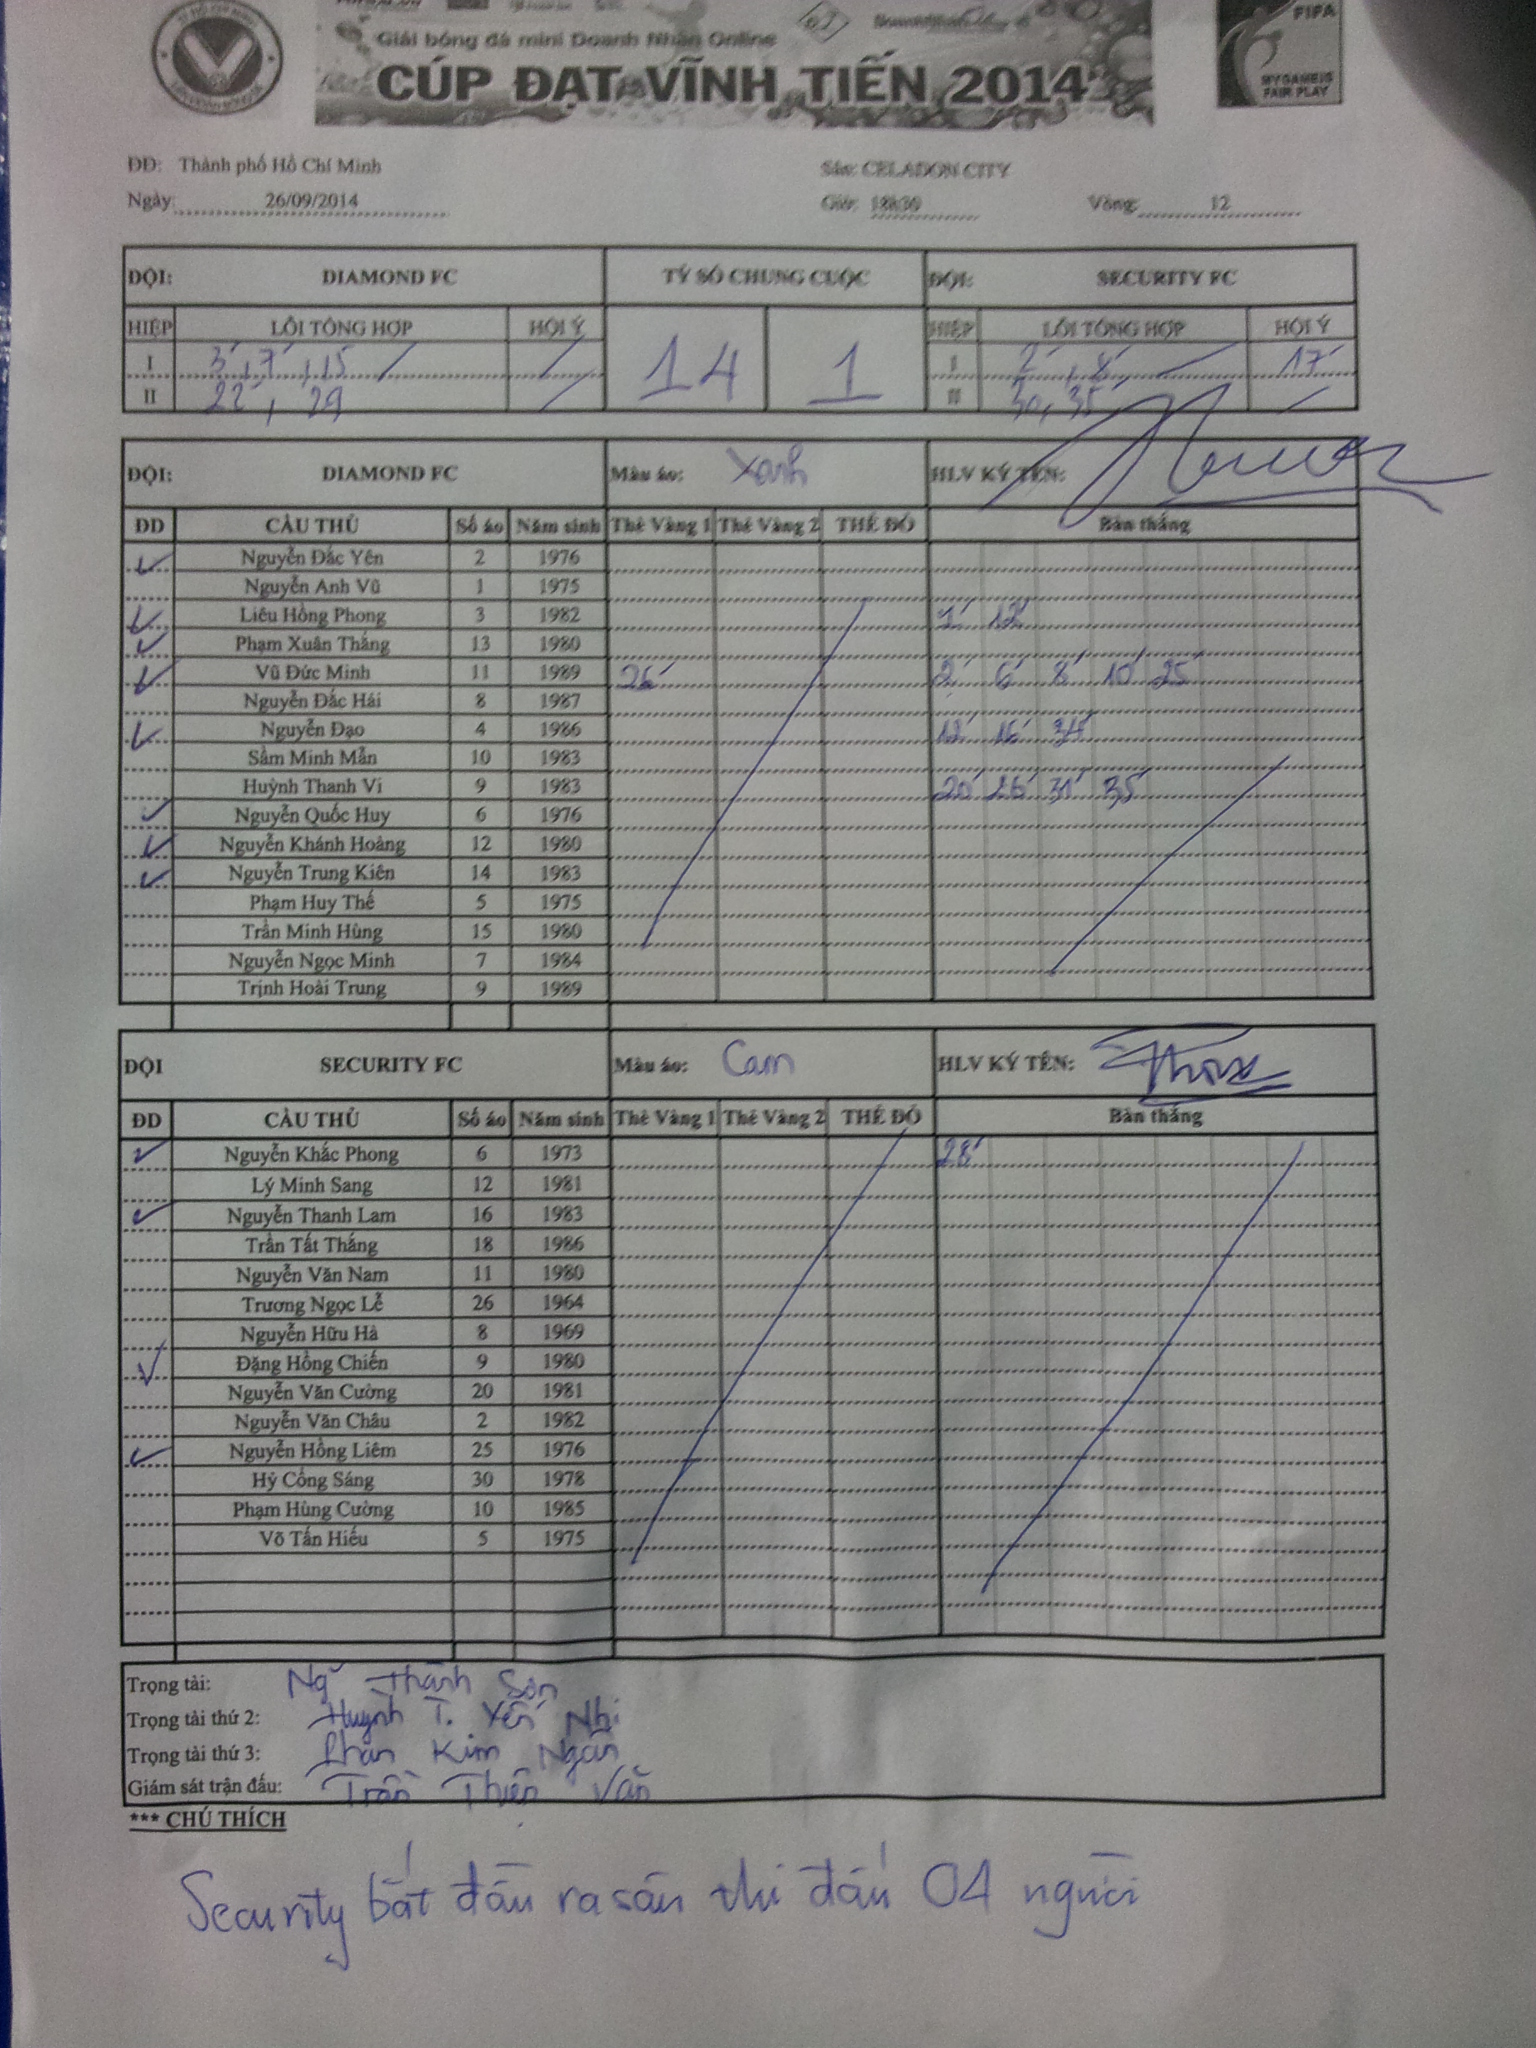 Giải bóng đá mini Doanh Nhân Online
CÚP ĐẠT VĨNH TIẾN 2014
FIFA
MY GAME IS
FAIR PLAY
ĐĐ: Thành phố Hồ Chí Minh Sân: CELADON CITY
Ngày: 26/09/2014 Giờ: 18h30 Vòng: 12
ĐỘI: DIAMOND FC TỶ SỐ CHUNG CUỘC ĐỘI: SECURITY FC
HIỆP LỖI TỔNG HỢP HỘI Ý 14 1 HIỆP LỖI TỔNG HỢP HỘI Ý
I 3', 7', 15 I 2', 8' 17'
II 22', 29 II 30, 35'
ĐỘI: DIAMOND FC Màu áo: Xanh HLV KÝ TÊN:
ĐD CẦU THỦ Số áo Năm sinh Thẻ Vàng 1 Thẻ Vàng 2 THẺ ĐỎ Bàn thắng
Nguyễn Đắc Yên 2 1976
Nguyễn Anh Vũ 1 1975
Liêu Hồng Phong 3 1982 1' 12'
Phạm Xuân Thắng 13 1980
Vũ Đức Minh 11 1989 26' 2' 6' 8' 10' 25'
Nguyễn Đắc Hải 8 1987
Nguyễn Đạo 4 1986 12' 16' 34'
Sầm Minh Mẫn 10 1983
Huỳnh Thanh Vi 9 1983 20' 26' 31' 35'
Nguyễn Quốc Huy 6 1976
Nguyễn Khánh Hoàng 12 1980
Nguyễn Trung Kiên 14 1983
Phạm Huy Thế 5 1975
Trần Minh Hùng 15 1980
Nguyễn Ngọc Minh 7 1984
Trịnh Hoài Trung 9 1989
ĐỘI SECURITY FC Màu áo: Cam HLV KÝ TÊN:
ĐD CẦU THỦ Số áo Năm sinh Thẻ Vàng 1 Thẻ Vàng 2 THẺ ĐỎ Bàn thắng
Nguyễn Khắc Phong 6 1973 28'
Lý Minh Sang 12 1981
Nguyễn Thanh Lam 16 1983
Trần Tất Thắng 18 1986
Nguyễn Văn Nam 11 1980
Trương Ngọc Lễ 26 1964
Nguyễn Hữu Hà 8 1969
Đặng Hồng Chiến 9 1980
Nguyễn Văn Cường 20 1981
Nguyễn Văn Châu 2 1982
Nguyễn Hồng Liêm 25 1976
Hỷ Cổng Sáng 30 1978
Phạm Hùng Cường 10 1985
Võ Tấn Hiếu 5 1975
Trọng tài: Ng Thành Sơn
Trọng tài thứ 2: Huỳnh T. Yến Nhi
Trọng tài thứ 3: Phan Kim Ngân
Giám sát trận đấu: Trần Thiện Văn
*** CHÚ THÍCH
Security bắt đầu ra sân thi đấu 04 người